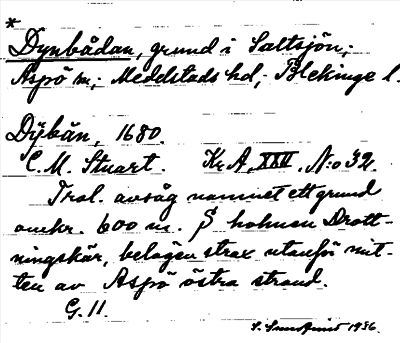 *
Dynbådan, grund i Saltsjön;
Aspö sn; Medelstads hd; Blekinge l.
Dÿbån, 1680.
C. M. Stuart. Kr A, XXII, No 32.
Trol. avsåg namnet ett grund
omkr. 600 m. S holmen Drott-
ningskär, belägen strax utanför mit-
ten av Aspö östra strand.
G. 11.
1936.